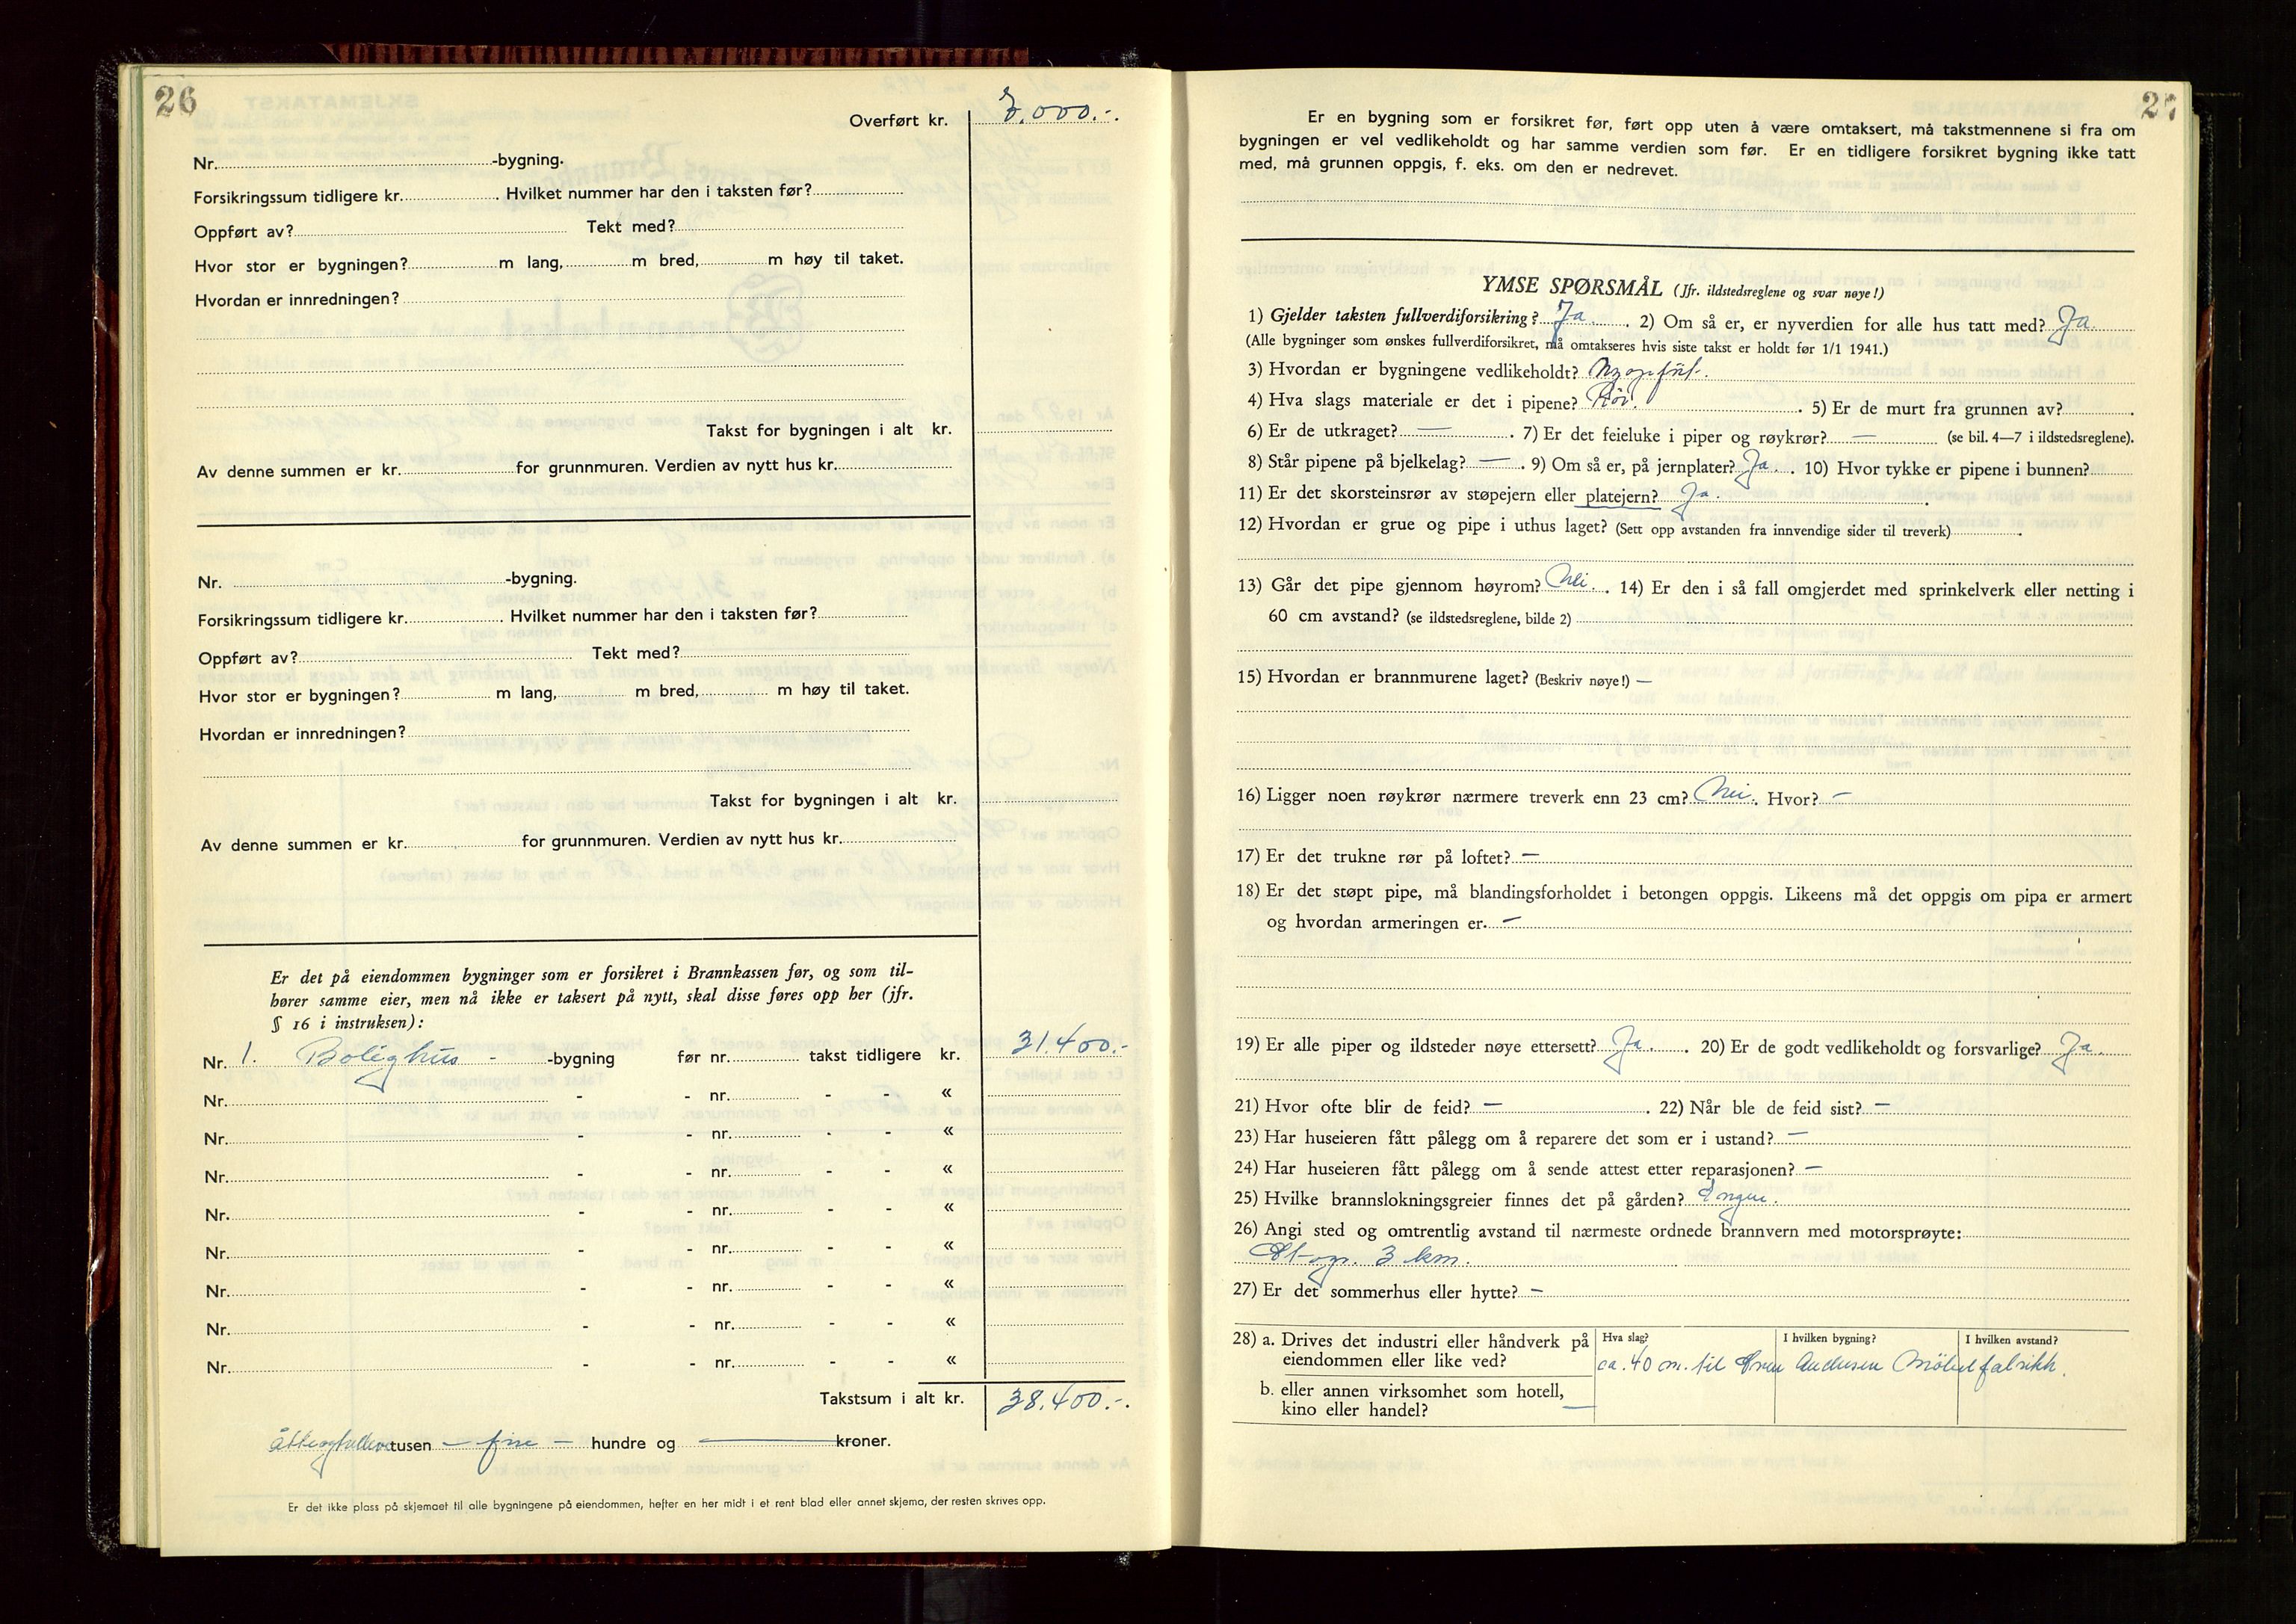 26
Overført kr. 7.000.-.
Nr. -bygning.
Forsikringssum tidligere kr. . Hvilket nummer har den i taksten før?
Oppført av? Tekt med?
Hvor stor er bygningen? m lang, m bred, m høy til taket.
Hvordan er innredningen?
Takst for bygningen i alt kr.
Av denne summen er kr. for grunnmuren. Verdien av nytt hus kr.
Nr. -bygning.
Forsikringssum tidligere kr. . Hvilket nummer har den i taksten før?
Oppført av? Tekt med?
Hvor stor er bygningen? m lang, m bred, m høy til taket.
Hvordan er innredningen?
Takst for bygningen i alt kr.
Av denne summen er kr. for grunnmuren. Verdien av nytt hus kr.
Er det på eiendommen bygninger som er forsikret i Brannkassen før, og som til-
hører samme eier, men nå ikke er taksert på nytt, skal disse føres opp her (jfr.
§ 16 i instruksen):
Nr. 1. Bolighus - -bygning før nr. takst tidligere kr. 31.400.-
Nr. - - nr. - - «
Nr. - - nr. - - «
Nr. - - nr. - - «
Nr. - - nr. - - «
Nr. - - nr. - - «
Nr. - - nr. - - «
Nr. - - nr. - - «
Nr. - - nr. - - «
Takstsum i alt kr. 38.400.-.
åtteogtredve tusen - fire - hundre og — kroner.
Er det ikke plass på skjemaet til alle bygningene på eiendommen, hefter en her midt i et rent blad eller annet skjema, der resten skrives opp.
27
Er en bygning som er forsikret før, ført opp uten å være omtaksert, må takstmennene si fra om
bygningen er vel vedlikeholdt og har samme verdien som før. Er en tidligere forsikret bygning ikke tatt
med, må grunnen oppgis, f. eks. om den er nedrevet.
YMSE SPØRSMÅL (Jfr. ildstedsreglene og svar nøye!)
1) Gjelder taksten fullverdiforsikring? Ja. . 2) Om så er, er nyverdien for alle hus tatt med? Ja.
(Alle bygninger som ønskes fullverdiforsikret, må omtakseres hvis siste takst er holdt før 1/1 1941.)
3) Hvordan er bygningene vedlikeholdt? Nyoppført.
4) Hva slags materiale er det i pipene? Rör. . 5) Er de murt fra grunnen av? .
6) Er de utkraget? — . 7) Er det feieluke i piper og røykrør? — (se bil. 4—7 i ildstedsreglene).
8) Står pipene på bjelkelag? — . 9) Om så er, på jernplater? Ja. . 10) Hvor tykke er pipene i bunnen?
11) Er det skorsteinsrør av støpejern eller platejern? Ja. .
12) Hvordan er grue og pipe i uthus laget? (Sett opp avstanden fra innvendige sider til treverk) .
13) Går det pipe gjennom høyrom? Nei. . 14) Er den i så fall omgjerdet med sprinkelverk eller netting i
60 cm avstand? (se ildstedsreglene, bilde 2)
15) Hvordan er brannmurene laget? (Beskriv nøye!) —
16) Ligger noen røykrør nærmere treverk enn 23 cm? Nei. Hvor? —
17) Er det trukne rør på loftet? —
18) Er det støpt pipe, må blandingsforholdet i betongen oppgis. Likeens må det oppgis om pipa er armert
og hvordan armeringen er. —
19) Er alle piper og ildsteder nøye ettersett? Ja. . 20) Er de godt vedlikeholdt og forsvarlige? Ja.
21) Hvor ofte blir de feid? — . 22) Når ble de feid sist? —
23) Har huseieren fått pålegg om å reparere det som er i ustand? —
24) Har huseieren fått pålegg om å sende attest etter reparasjonen? —
25) Hvilke brannslokningsgreier finnes det på gården? Ingen.
26) Angi sted og omtrentlig avstand til nærmeste ordnede brannvern med motorsprøyte:
3 km.
27) Er det sommerhus eller hytte? —
28) a. Drives det industri eller håndverk på Hva slag? I hvilken bygning? I hvilken avstand?
eiendommen eller like ved? ca. 40 m. til Andersen Möbelfabrikk.
b. eller annen virksomhet som hotell,
kino eller handel? —